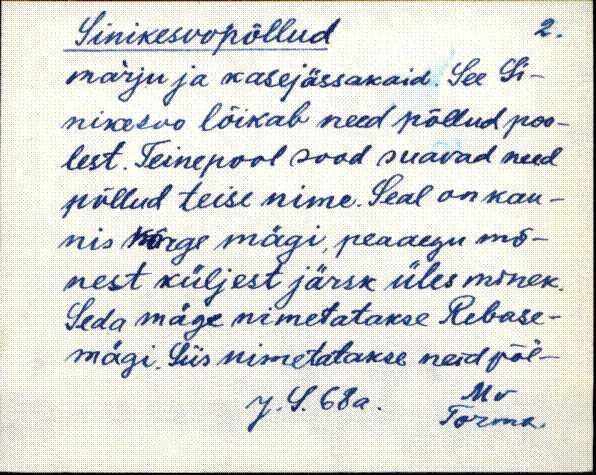 Sinikesoopõllud 2.
marju ja kasejässakaid. See Si-
nikesoo lõikab need põllud poo-
lest. Teinepool sood saavad need
põllud teise nime. Seal on kau-
nis kõrge mägi, peaaegu mõ-
nest küljest järsk üles minek.
Seda mäge nimetatakse Rebase-
mägi. Siis nimetatakse neid põl-
J. S. 68a. Mv
Torma.